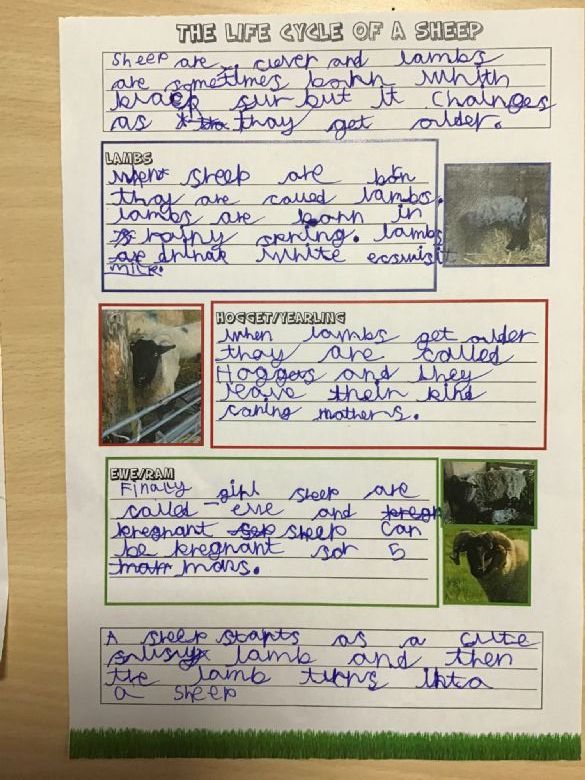 THE LIFE CYCLE OF A SHEEP
Sheep are clever and lambs
are sometimes born whith
black fur but it chainges
as thay get older.
LAMBS
When sheep are born
thay are called lambs.
lambs are born in
rainy spring. lambs
drink white
milk.
HOGGET/YEARLING
When lambs get older
thay are called
Hoggets and they
leave their kind
caring mothers.
EWE/RAM
Finally girl sheep are
called ewe and
pregnant sheep can
be pregnant for 5
A sheep starts as a cute
lamb and then
the lamb turns into
a sheep